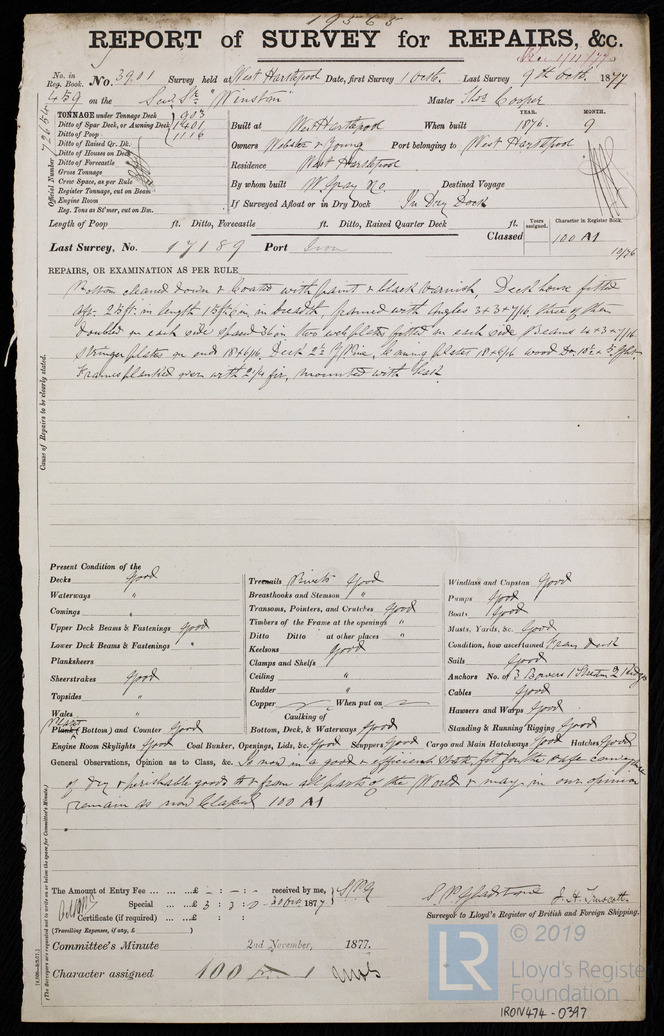 19565
REPORT of SURVEY for REPAIRS, &c.
Rec 1/11/77
No. in Reg. Book. No. 3901 Survey held at West Hartlepool Date, first Survey 1 Octb. Last Survey 9th Octb. 1877
459 on the Scw Str "Winston" Master Thos Cooper
TONNAGE under Tonnage Deck 903
Ditto of Spar Deck, or Awning Deck 1401
Ditto of Poop 1116
Ditto of Raised Qr. Dk.
Ditto of Houses on Deck
Ditto of Forecastle
Gross Tonnage
Crew Space, as per Rule
Register Tonnage, cut on Beam
Engine Room
Reg. Tons as St'mer, cut on Bm.
Official Number
YEAR. MONTH.
Built at West Hartlepool When built 1876. 9
Owners Webster & Young Port belonging to West Hartlepool
Residence West Hartlepool
By whom built W. Gray & Co. Destined Voyage
If Surveyed Afloat or in Dry Dock In Dry Dock
Length of Poop ft. Ditto, Forecastle ft. Ditto, Raised Quarter Deck ft.
Years assigned. Character in Register Book.
Classed 100 A1
10/76
Last Survey, No. 17189 Port Iron
REPAIRS, OR EXAMINATION AS PER RULE
Bottom cleaned down & Coated with paint & black varnish, Deck house fitted
aft. 25 ft. in length in breadth, framed with Angles 3 x 3 x 7/16, three of them
doubled on each side two webplates fitted on each side Beams 4 x 3 x 7/16
Stringer plates on ends 18 x 6/16, Deck 2½ Y Pine, Coaming plates 18 x 6/16 wood
Frames planked over with 2¼ fir, mounted with teak.
Cause of Repairs to be clearly stated.
Present Condition of the
Decks Good
Waterways "
Comings "
Upper Deck Beams & Fastenings Good
Lower Deck Beams & Fastenings "
Planksheers
Sheerstrakes Good
Topsides "
Wales "
Plank (Bottom) and Counter Good
Treenails Rivets Good
Breasthooks and Stemson "
Transoms, Pointers, and Crutches Good
Timbers of the Frame at the openings "
Ditto Ditto at other places "
Keelsons Good
Clamps and Shelfs
Ceiling "
Rudder "
Copper When put on
Caulking of Bottom, Deck, & Waterways Good
Windlass and Capstan Good
Pumps Good
Boats Good
Masts, Yards, &c. Good
Condition, how ascertained From deck
Sails Good
Anchors No. of 3 Bowers 1 Stream 2 Kedges
Cables Good
Hawsers and Warps Good
Standing & Running Rigging Good
Engine Room Skylights Good Coal Bunker, Openings, Lids, &c. Good Scuppers Good Cargo and Main Hatchways Good Hatches Good
General Observations, Opinion as to Class, &c. Is now in a good & efficient state, fit for the safe conveyance
of dry & perishable goods to & from all parts of the World & may in our opinion
remain as now Classed 100 A1
(The Surveyors are requested not to write on or below the space for Committee's Minute.)
The Amount of Entry Fee £ : - : - received by me,
Special £ 3 : 3 : 0 1877
Certificate (if required) £ : :
(Travelling Expenses, if any, £ )
S P Gladstone J. H. Truscott.
Surveyor to Lloyd's Register of British and Foreign Shipping.
Committee's Minute 2nd November, 1877.
Character assigned 100 A 1
© 2019
LR Lloyd's Register
Foundation
IRON474-0397